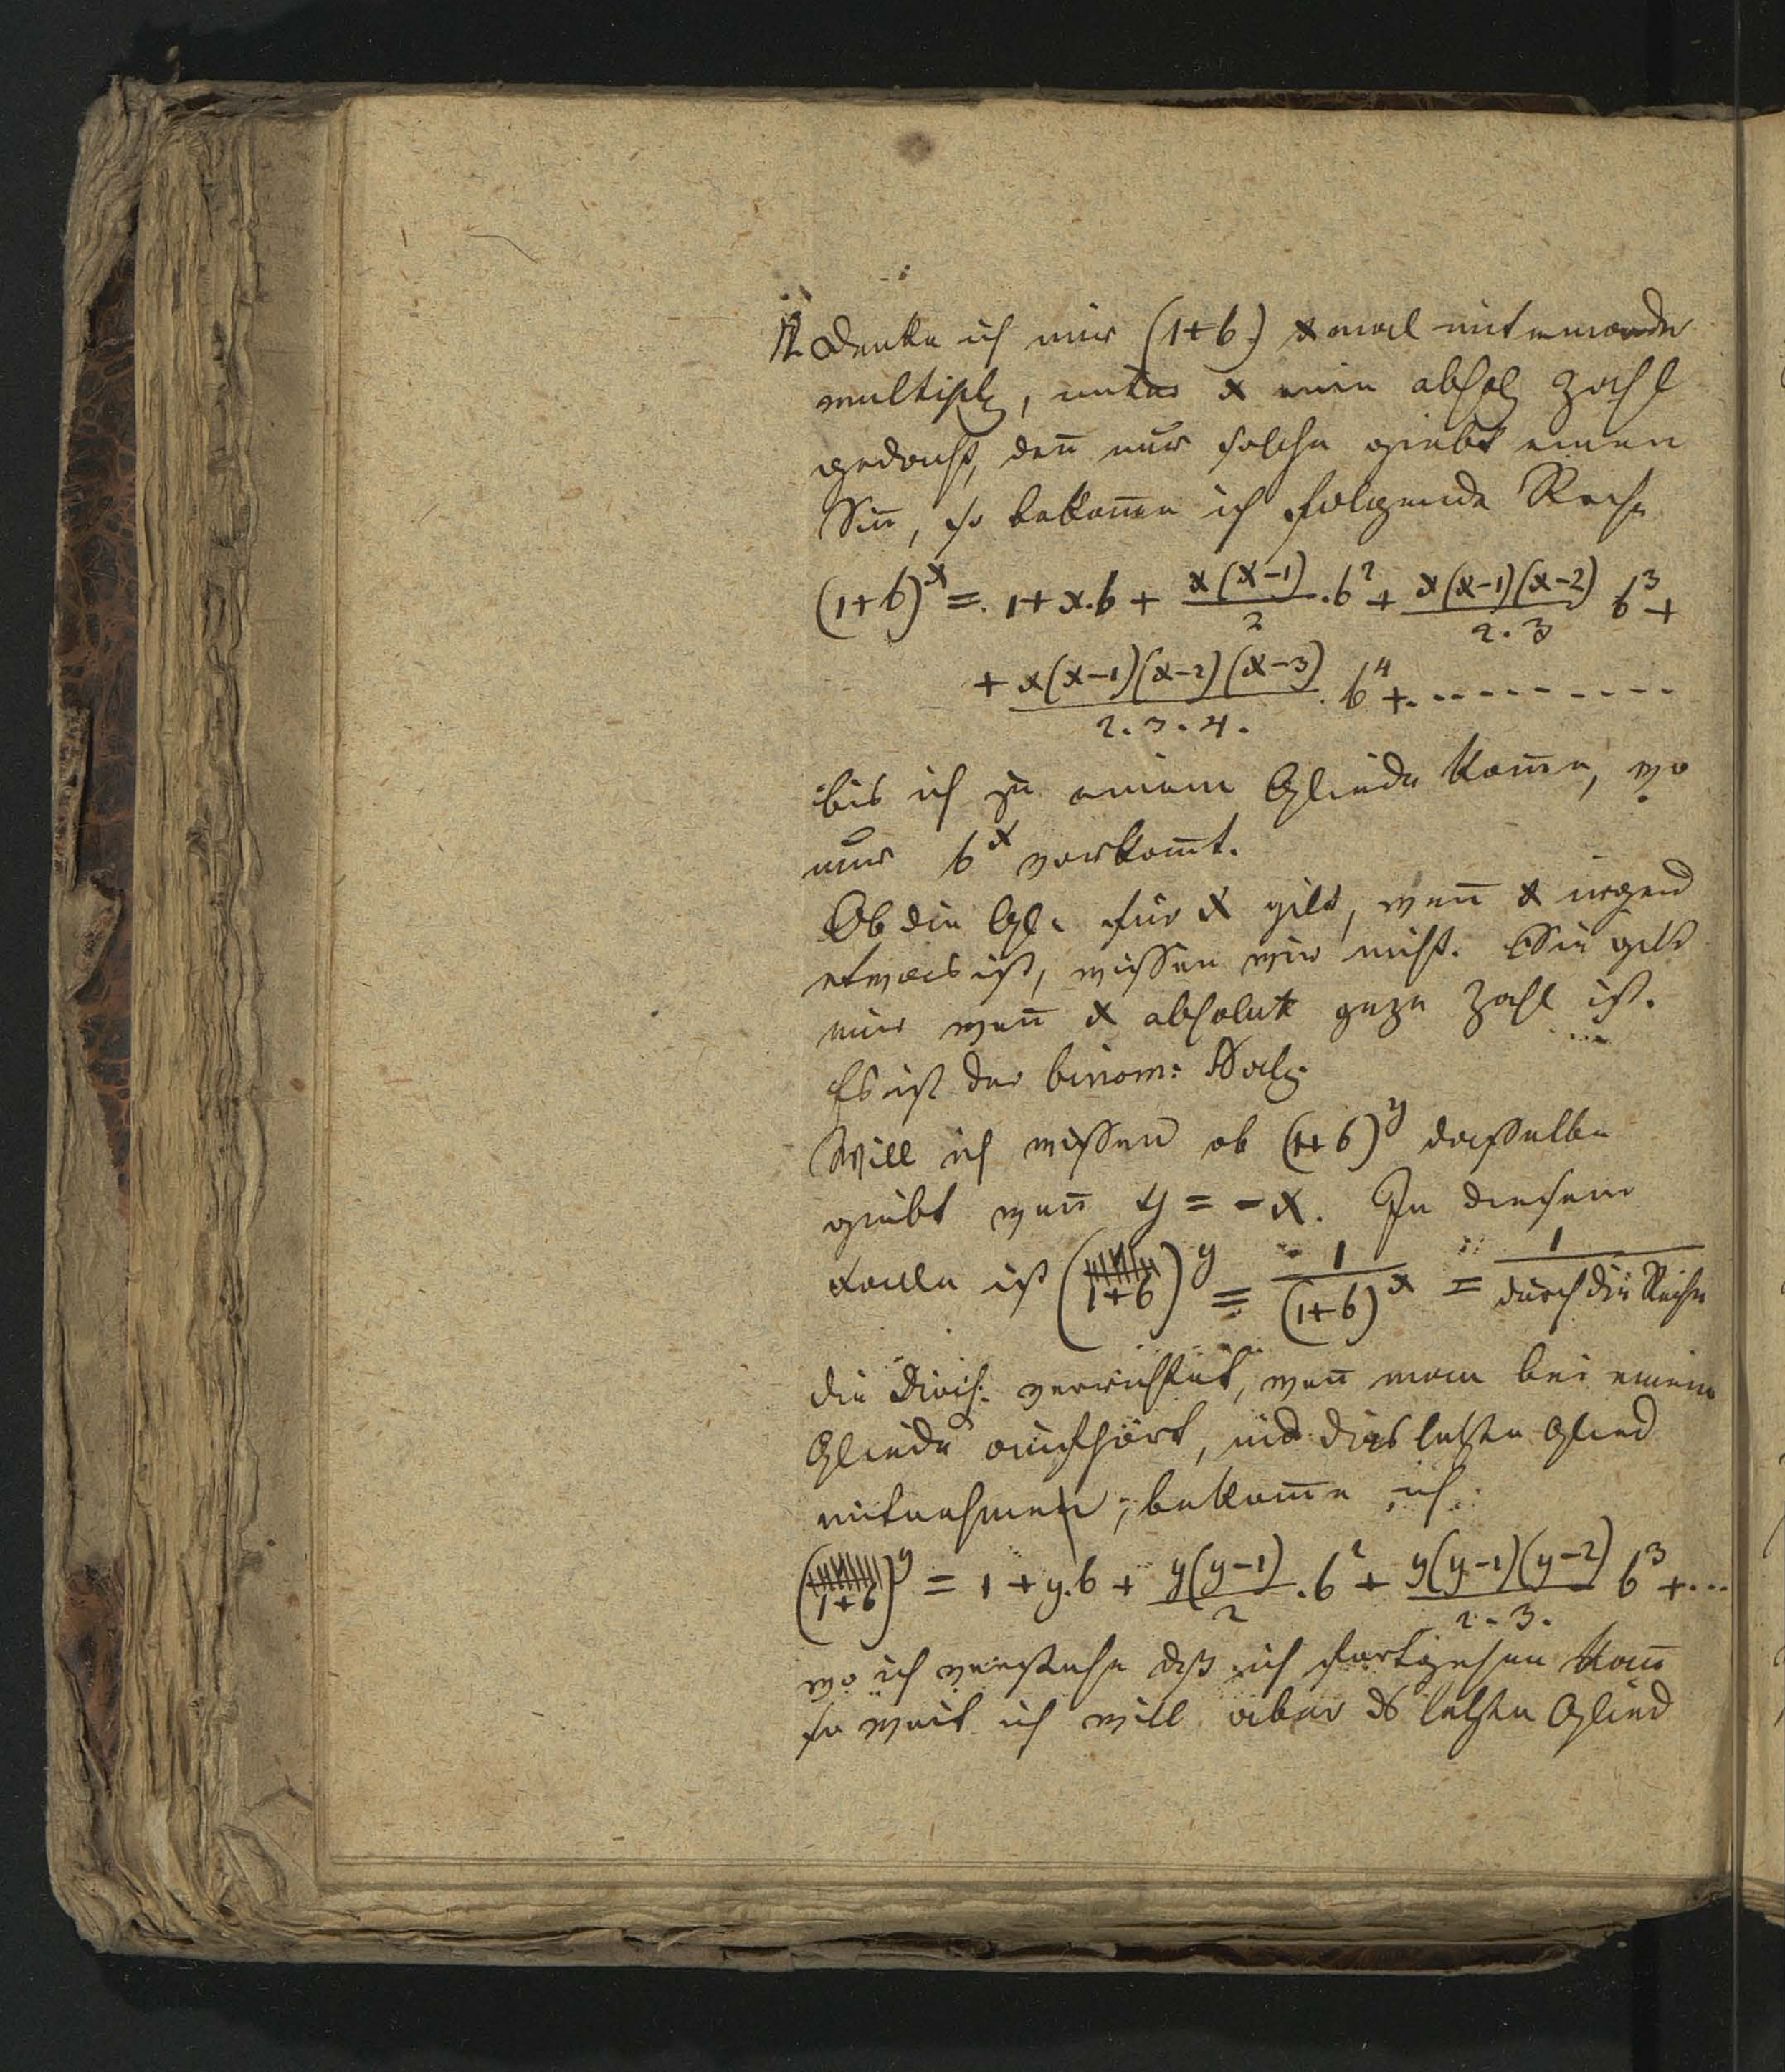 Denke ich mir (1+b) x mal miteinander
multipl, unter x eine absol Zahl
gedacht, den̄ nur solche giebt einen
Sin̄, so bekom̄e ich folgende Reihe
(1+b)^x = 1+x.b + x(x-1)/2 .b^2 + x(x-1)(x-2)/2.3 b^3 +
+ x(x-1)(x-2)(x-3)/2.3.4. . b^4 + - - - - - - - - -
bis ich zu einem Gliede kom̄e, wo
nur b^x vorkom̄t.
Ob die Gl. für x gilt, wen̄ x irgend
etwas ist, wissen wir nicht. Sie gilt
nur wen̄ x absolut gaze Zahl ist.
Es ist der binom: Satz.
Will ich wissen ob (1+b)^y dasselbe
giebt wen̄ y = -x. In diesem
Falle ist (1+b)^y = 1/(1+b)^x = 1/durch die Reihe
die Divis: verrichtet, wen̄ man bei einem
Gliede aufhört, und dies letzte Glied
mitnehmen, bekom̄e ich
(1+b)^y = 1 + y.b + y(y-1)/2 .b^2 + y(y-1)(y-2)/2.3. b^3 + ...
wo ich verstehe dß ich fortgehen kan̄
so weit ich will aber ds letzte Glied